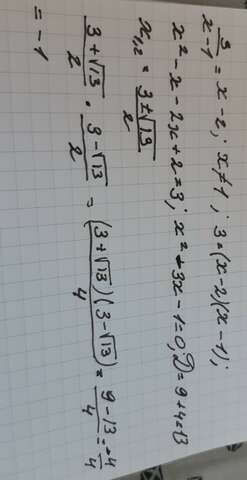 3/(x-1) = x-2; x≠1; 3=(x-2)(x-1);
x²-x-2x+2=3; x²-3x-1=0, D=9+4=13
x₁,₂ = (3±√13)/2
(3+√13)/2 · (3-√13)/2 = ((3+√13)(3-√13))/4 = (9-13)/4 = -4/4
= -1